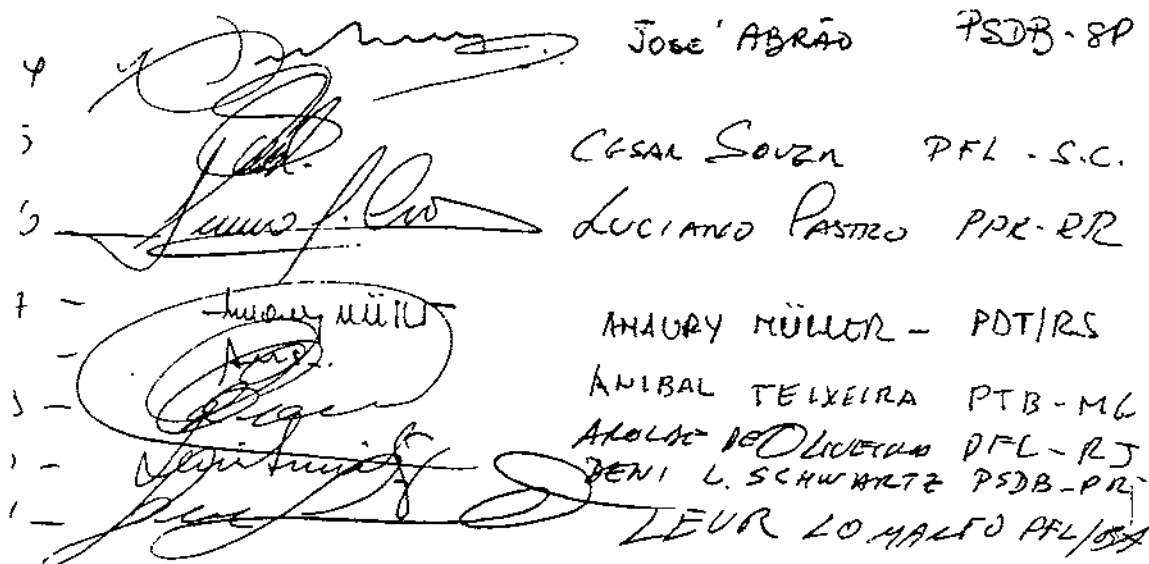 4 JOSÉ ABRÃO PSDB - SP
5 CESAR SOUZA PFL - S.C.
6 LUCIANO PASTRO PPR - RR
7 - Amaury Müller AMAURY MÜLLER - PDT/RS
- ANIBAL TEIXEIRA PTB - MG
- AROLDE DE OLIVEIRA PFL - RJ
- DENI L. SCHWARTZ PSDB - PR
- LEUR LOMANTO PFL/BA